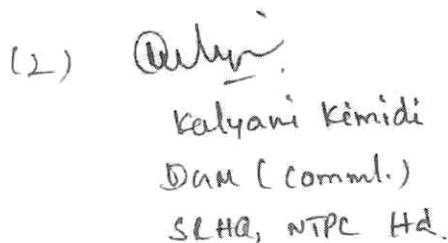 (2)
Kalyani Kimidi
DGM (Comml.)
SRHQ, NTPC Hd.